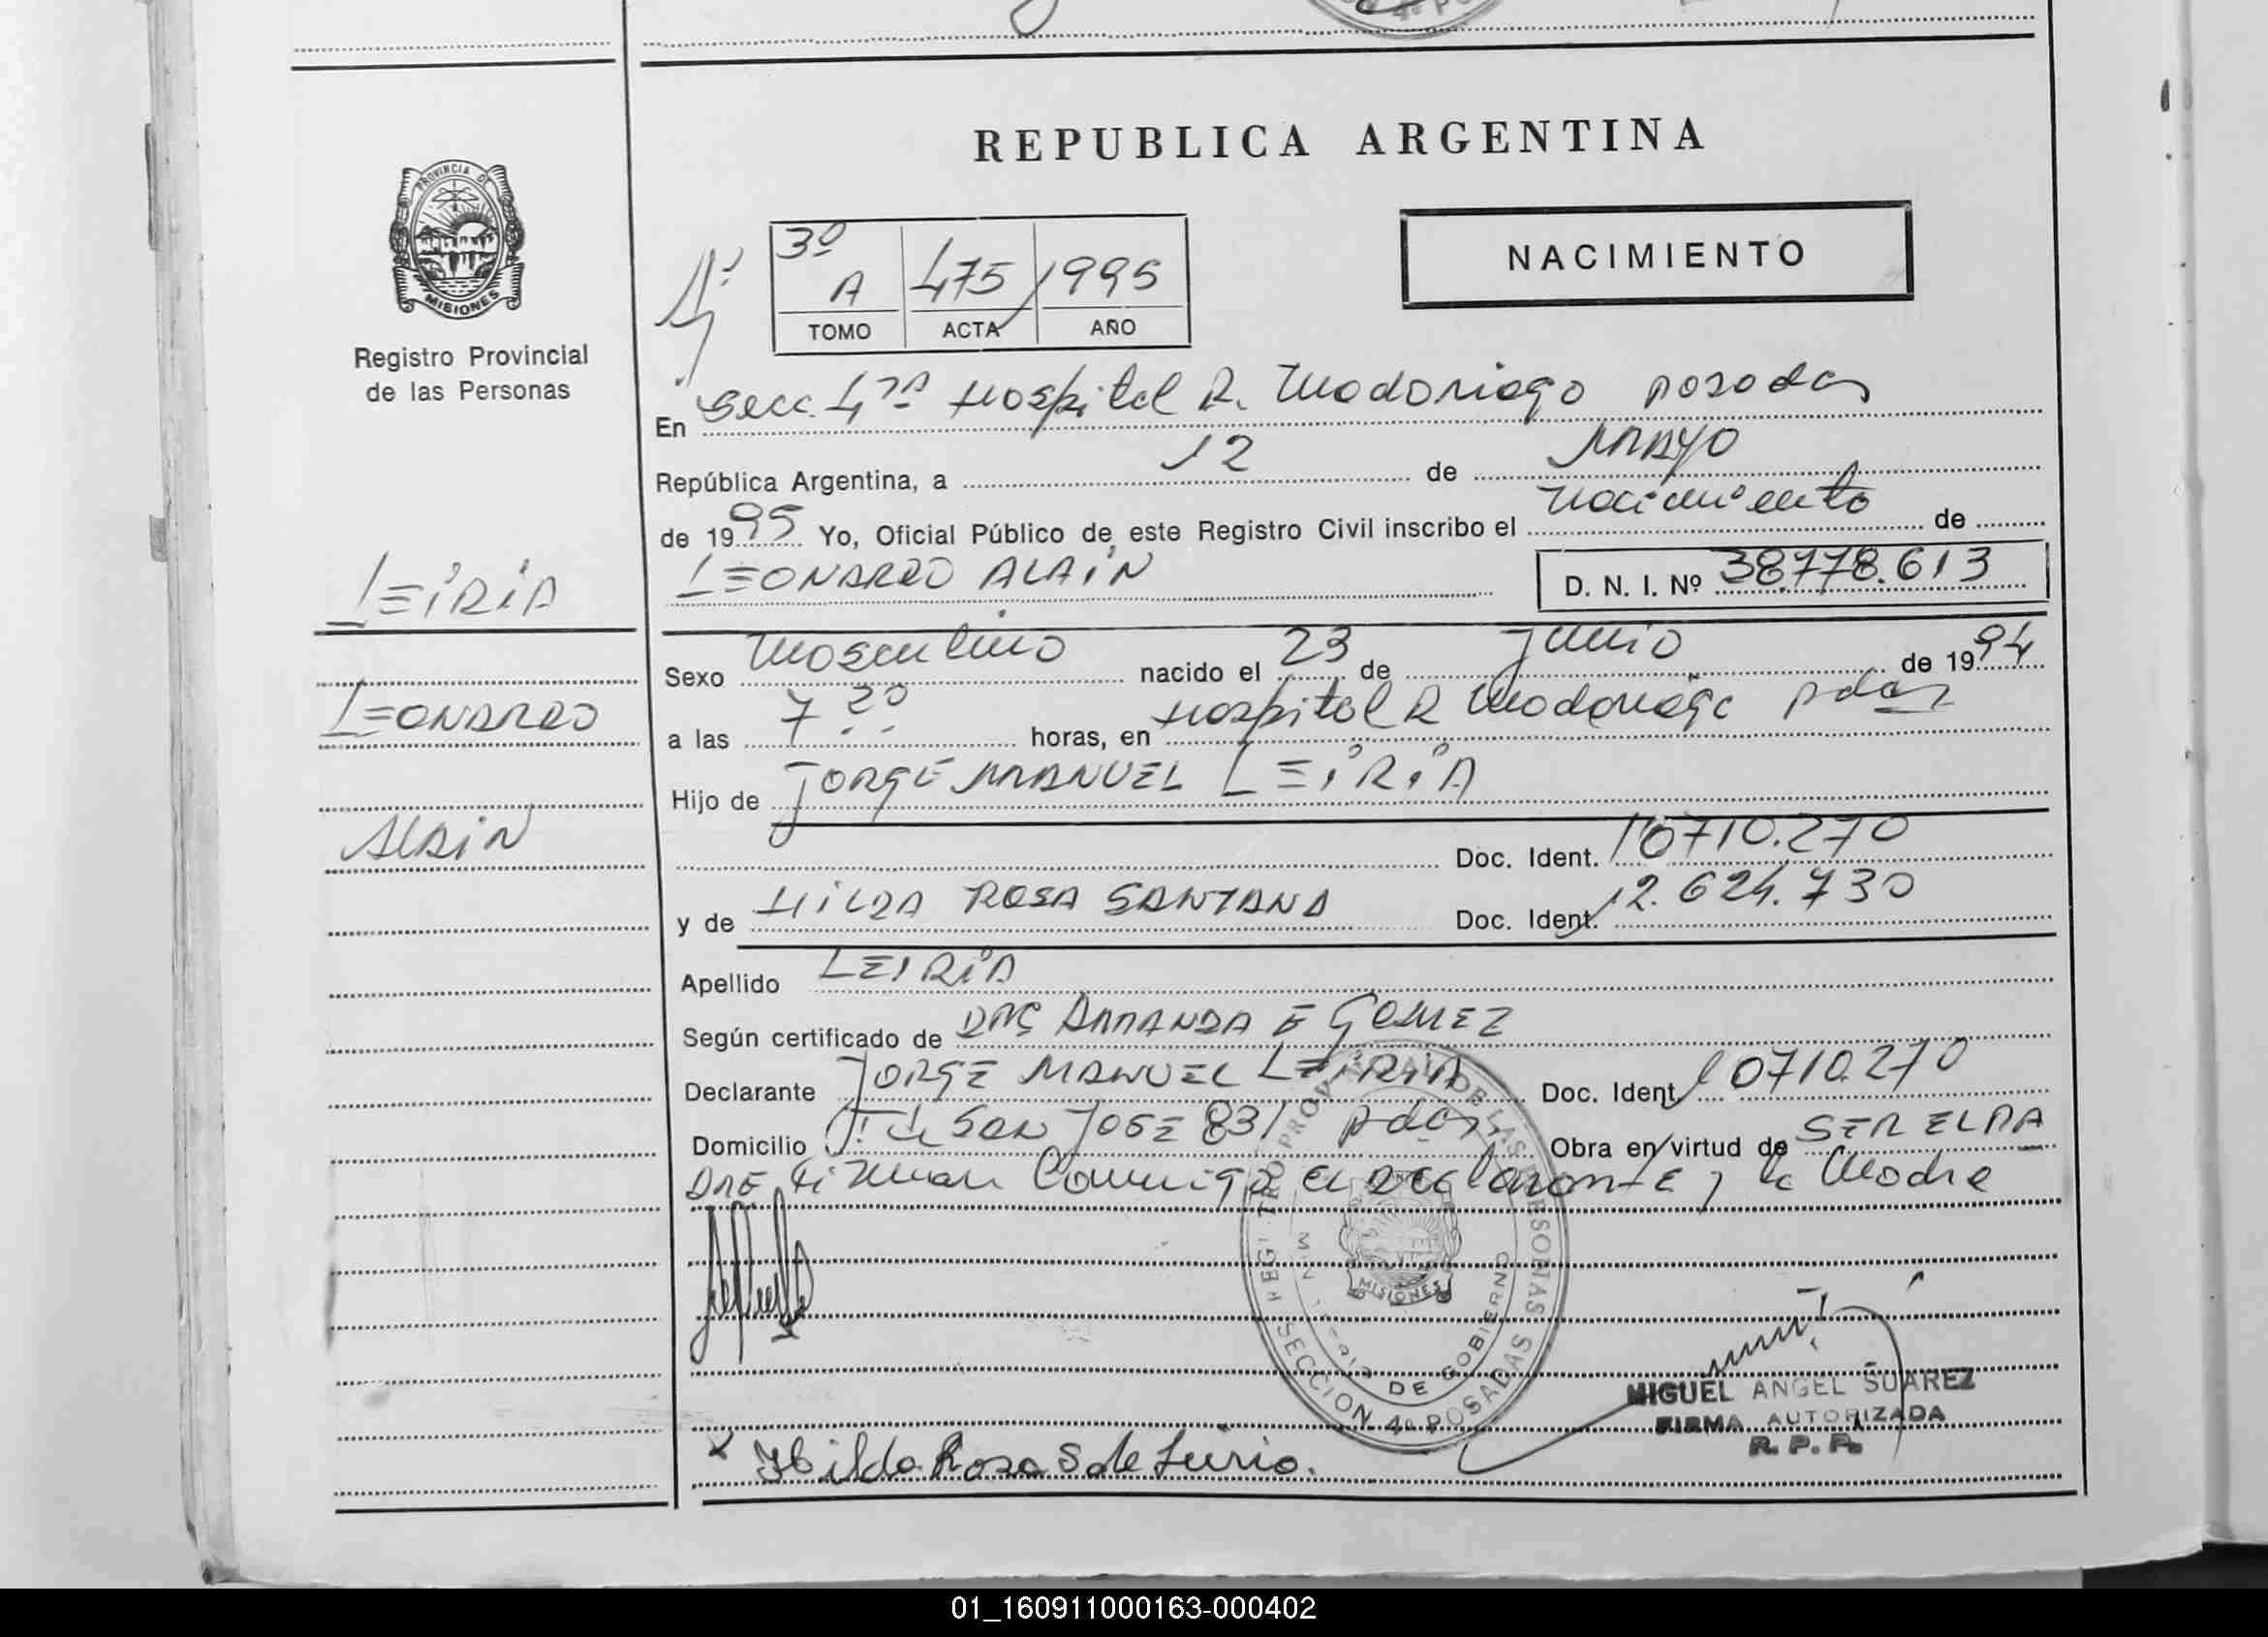 REPUBLICA ARGENTINA
PROVINCIA DE
MISIONES
Registro Provincial
de las Personas
NACIMIENTO
3º A 475 1995
TOMO ACTA AÑO
En Secc. 4ta Hospital R. Madariaga Posadas
República Argentina, a 12 de MAYO
de 1995 Yo, Oficial Público de este Registro Civil inscribo el nacimiento de
LEIRIA
LEONARDO ALAIN D. N. I. Nº 38.778.613
Sexo Masculino nacido el 23 de junio de 1994
LEONARDO
a las 7 horas, en Hospital R Madariaga Pdas
Hijo de JORGE MANUEL LEIRIA
ALAIN
Doc. Ident. 10710.270
y de HILDA ROSA SANTANA Doc. Ident. 12.624.730
Apellido LEIRIA
Según certificado de DRA AMANDA E GOMEZ
Declarante JORGE MANUEL LEIRIA Doc. Ident. 10710.270
Domicilio SAN JOSE 831 Pdas Obra en virtud de SER EL PA
DRE Firman Conmigo el declarante y la Madre
SECCION 4ª POSADAS
DE GOBIERNO
MISIONES
MIGUEL ANGEL SUAREZ
FIRMA AUTORIZADA
R. P. P.
x Hilda Rosa S de Leiria.
01_160911000163-000402